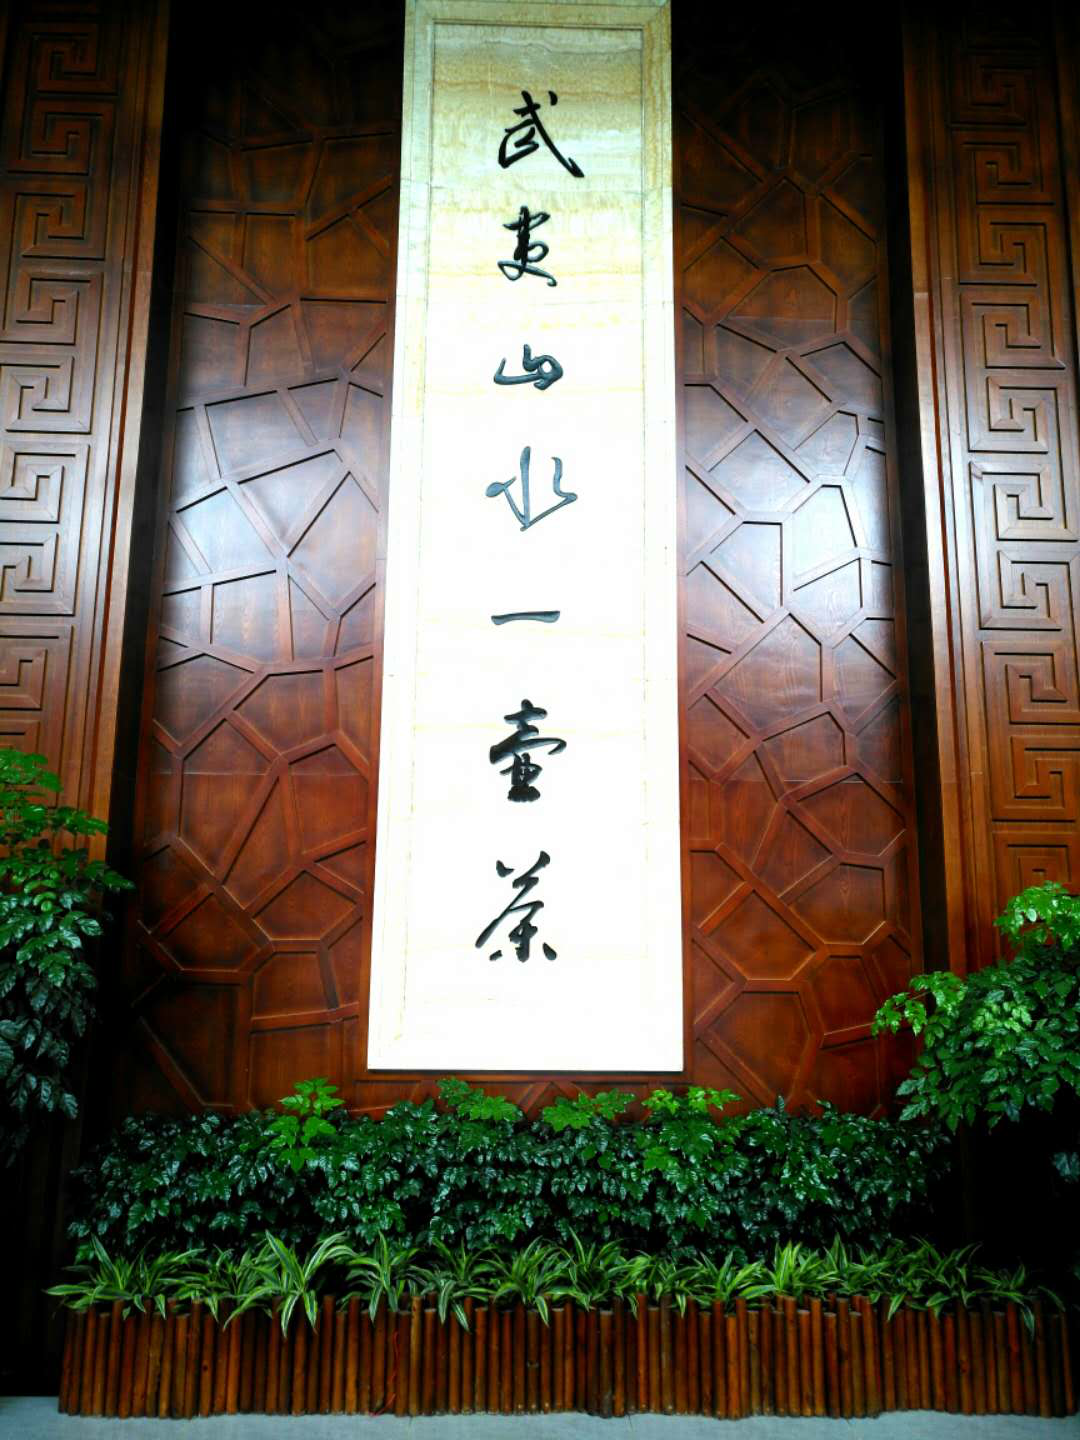 武夷山水一壶茶